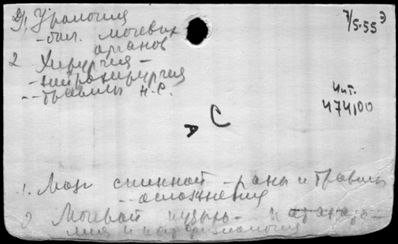 Д/ Урология
- бол. мочевых
органов
7/5-55 э
2 Хирургия -
- нейрохирургия
-- травмы н.с.
Чит.
474100
А С
1. Мозг спинной - раны и травмы
-- осложнения
2 Мочевой пузырь -